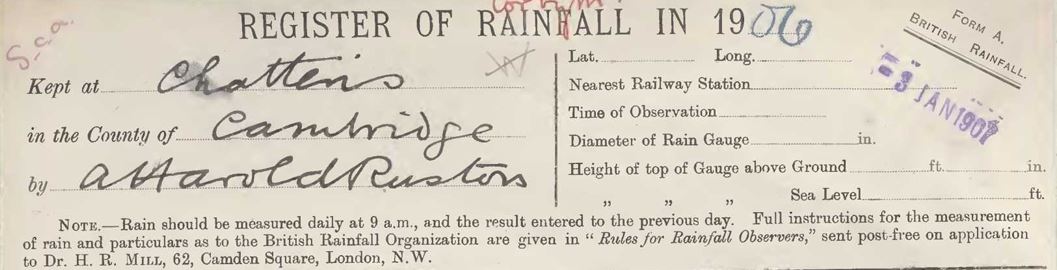 REGISTER OF RAINFALL IN 1906
FORM A.
BRITISH RAINFALL.
S-ca.
Kept at Chatteris
in the County of Cambridge
by A Harold Ruston
Lat. Long.
Nearest Railway Station
Time of Observation
Diameter of Rain Gauge in.
Height of top of Gauge above Ground ft. in.
„ „ „ Sea Level ft.
3 JAN 1907
NOTE.—Rain should be measured daily at 9 a.m., and the result entered to the previous day. Full instructions for the measurement
of rain and particulars as to the British Rainfall Organization are given in "Rules for Rainfall Observers," sent post-free on application
to Dr. H. R. MILL, 62, Camden Square, London, N.W.